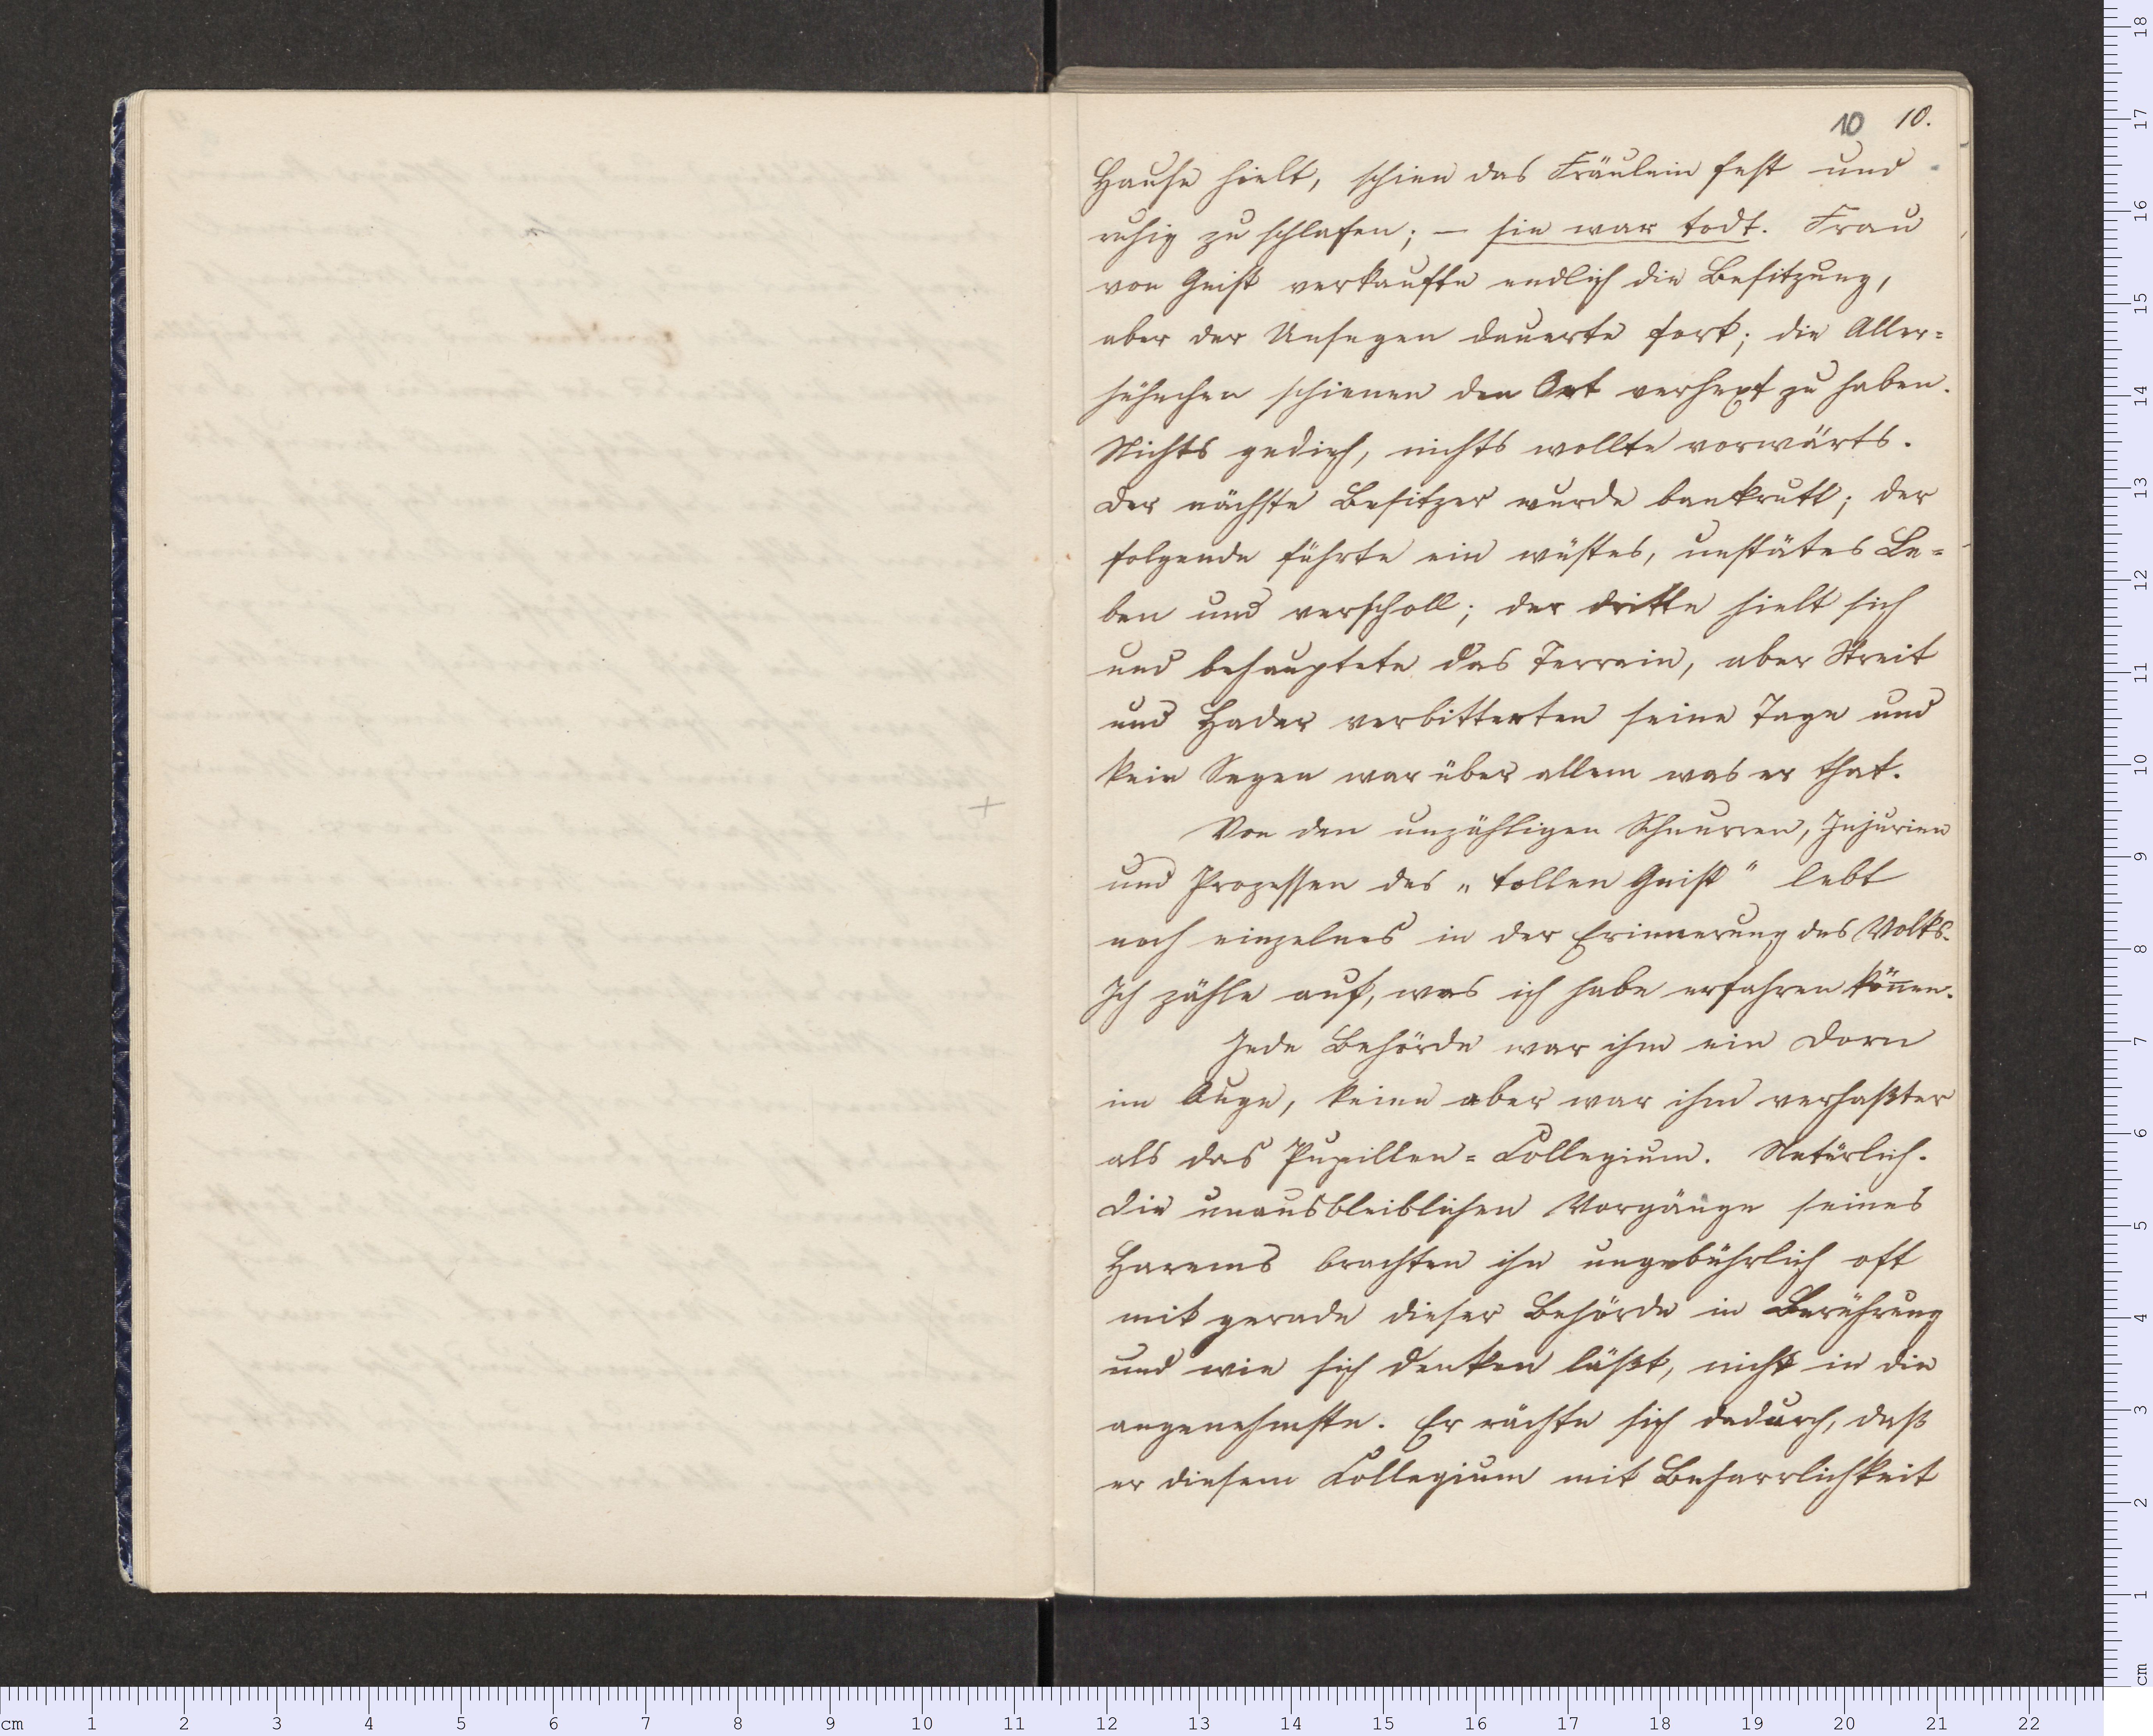 10 10.
Hause hielt, schien das Fräulein fest und
ruhig zu schlafen; — sie war todt. Frau
von Geist verkaufte endlich die Besitzung,
aber der Unsegen dauerte fort; die Aller=
hühnchen schienen den Ort verhext zu haben.
Nichts gedieh, nichts wollte vorwärts.
Der nächste Besitzer wurde bankrutt; der
folgende führte ein wüstes, unstätes Le=
ben und verscholl; der dritte hielt sich
und behauptete das Terrain, aber Streit
und Hader verbitterten seine Tage und
kein Segen war über allem was er that.
Von den unzähligen Schnurren, Injurien
und Prozessen des „tollen Geist" lebt
noch einzelnes in der Erinnerung des Volks.
Ich zähle auf, was ich habe erfahren kön̄en.
Jede Behörde war ihm ein Dorn
im Auge, keine aber war ihm verhaßter
als das Pupillen=Collegium. Natürlich.
Die unausbleiblichen Vorgänge seines
Harems brachten ihn ungebührlich oft
mit gerade dieser Behörde in Berührung
und wie sich denken läßt, nicht in die
angenehmste. Er rächte sich dadurch, daß
er diesem Collegium mit Beharrlichkeit